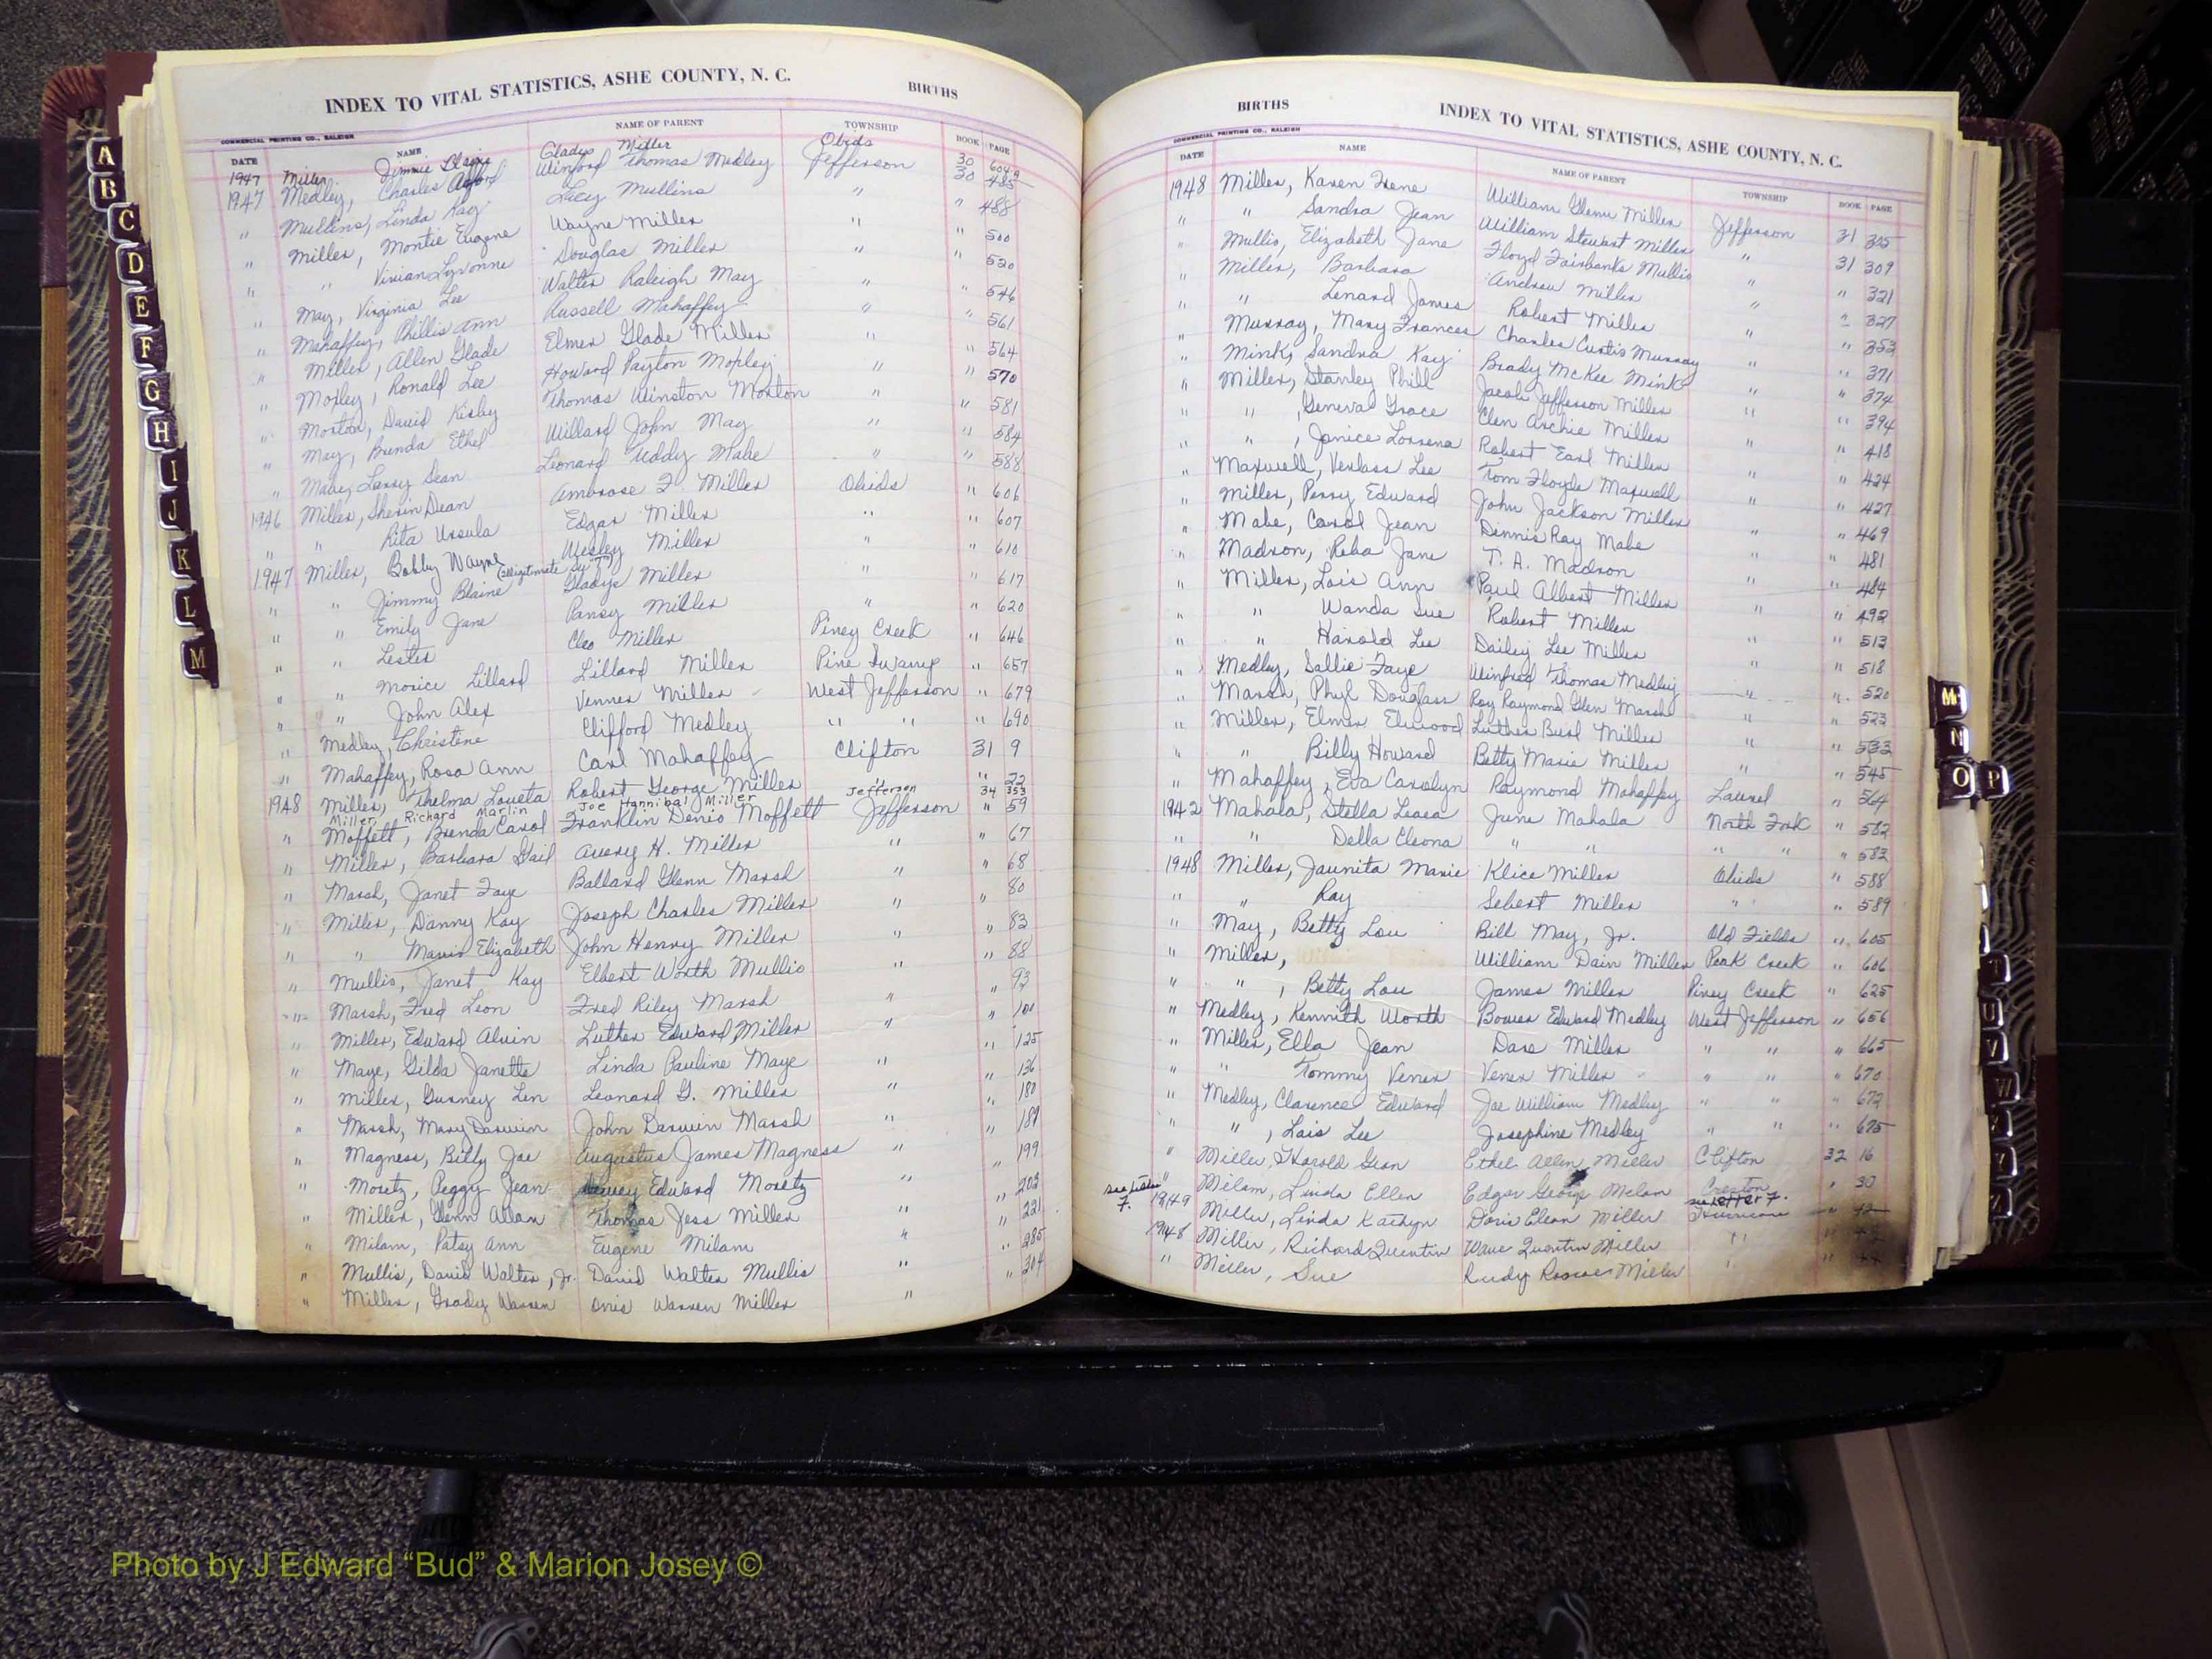 INDEX TO VITAL STATISTICS, ASHE COUNTY, N. C. BIRTHS
COMMERCIAL PRINTING CO., RALEIGH
DATE NAME NAME OF PARENT TOWNSHIP BOOK PAGE
1947 Miller Jimmie Gladys Miller Obids 30 604
1947 Medley, Charles Winford Thomas Medley Jefferson 30 485
" Mullins, Linda Kay Lucy Mullins " " 488
" Miller, Montie Eugene Wayne Miller " " 500
" " Vivian Douglas Miller " " 520
" May, Virginia Lee Walter Raleigh May " " 546
" Mahaffey, Phillis Ann Russell Mahaffey " " 561
" Miller, Allen Glade Elmer Glade Miller " " 564
" Moxley, Ronald Lee Howard Payton Moxley " " 570
" Morton, David Kirby Thomas Winston Morton " " 581
" May, Brenda Ethel Willard John May " " 584
" Mabe, Larry Dean Leonard Uddy Mabe " " 588
1946 Miller, Dean Ambrose F. Miller Obids " 606
" " Rita Ursula Edgar Miller " " 607
1947 Miller, Bobby Wayne Wesley Miller " " 610
" " Jimmy Blaine (illegitimate Gladys Miller " " 617
" " Emily Jane Pansy Miller " " 620
" " Lester Cleo Miller Piney Creek " 646
" " Morice Lillard Lillard Miller Pine Swamp " 657
" " John Alex Venner Miller West Jefferson " 679
" Medley, Christine Clifford Medley " " " 690
" Mahaffey, Rosa Ann Carl Mahaffey Clifton 31 9
1948 Miller, Thelma Loueta Robert George Miller " " 22
Miller, Richard Marlin Joe Hannibal Miller Jefferson 34 353
" Moffett, Brenda Carol Franklin Denio Moffett Jefferson " 59
" Miller, Barbara Gail Avery H. Miller " " 67
" Marsh, Janet Faye Ballard Glenn Marsh " " 68
" Miller, Danny Kay Joseph Charles Miller " " 80
" " Elizabeth John Henry Miller " " 83
" Mullis, Janet Kay Elbert Worth Mullis " " 88
" Marsh, Fred Leon Fred Riley Marsh " " 93
" Miller, Edward Alvin Luther Edward Miller " " 100
" Maye, Gilda Janette Linda Pauline Maye " " 125
" Miller, Gurney Len Leonard G. Miller " " 136
" Marsh, Mary Darwin John Darwin Marsh " " 180
" Magness, Billy Joe Augustus James Magness " " 189
" Moretz, Peggy Jean Edward Moretz " " 199
" Miller, Glenn Allan Thomas Jess Miller " " 203
" Milam, Patsy Ann Eugene Milam " " 221
" Mullis, David Walter, Jr. David Walter Mullis " " 285
" Miller, Grady Warren Warren Miller " " 204
A
B
C
D
E
F
G
H
I
J
K
L
M
BIRTHS INDEX TO VITAL STATISTICS, ASHE COUNTY, N. C.
COMMERCIAL PRINTING CO., RALEIGH
DATE NAME NAME OF PARENT TOWNSHIP BOOK PAGE
1948 Miller, Karen Irene William Glenn Miller Jefferson 31 305
" " Sandra Jean William Stewart Miller " 31 309
" Mullis, Elizabeth Jane Floyd Fairbanks Mullis " " 321
" Miller, Barbara Andrew Miller " " 327
" " Lenard James Robert Miller " " 353
" Murray, Mary Frances Charles Curtis Murray " " 371
" Mink, Sandra Kay Brady McKee Mink " " 374
" Miller, Stanley Phill Jacob Jefferson Miller " " 394
" " , Geneva Grace Clen Archie Miller " " 418
" " , Janice Lorrena Robert Earl Miller " " 424
" Maxwell, Lee Tom Floyde Maxwell " " 427
" Miller, Perry Edward John Jackson Miller " " 469
" Mabe, Carol Jean Dennis Ray Mabe " " 481
" Madron, Reba Jane T. A. Madron " " 484
" Miller, Lois Ann Paul Albert Miller " " 492
" " Wanda Sue Robert Miller " " 513
" " Harold Lee Dailey Lee Miller " " 518
" Medley, Sallie Faye Winfred Thomas Medley " " 520
" Marsh, Phyl Douglass Roy Raymond Glen Marsh " " 523
" Miller, Elmer Elwood Luther Burl Miller " " 533
" " Billy Howard Betty Marie Miller " " 545
" Mahaffey, Eva Carolyn Raymond Mahaffey Laurel " 564
1942 Mahala, Stella June Mahala North Fork " 582
" " Della Cleona " " " " " 583
1948 Miller, Jaunita Marie Klice Miller Obids " 588
" " Ray Sebert Miller " " 589
" May, Betty Lou Bill May, Jr. Old Fields " 605
" Miller, William Dain Miller Peak Creek " 606
" " , Betty Lou James Miller Piney Creek " 625
" Medley, Kennith Worth Bower Edward Medley West Jefferson " 656
" Miller, Ella Jean Dare Miller " " " 665
" " Tommy Vener Vener Miller " " " 670
" Medley, Clarence Edward Joe William Medley " " " 672
" " , Lois Lee Josephine Medley " " " 675
" Miller, Harold Gean Ethel Allen Miller Clifton 32 16
" Milam, Linda Ellen Edgar George Milam Creston " 30
1949 Miller, Linda Kathyn Doris Elean Miller see letter F. " 42
1948 Miller, Richard Quentin Wave Quentin Miller "
" Miller, Sue Rudy Roscoe Miller "
M
N
O
P
T
U
V
W
Photo by J Edward “Bud” & Marion Josey ©